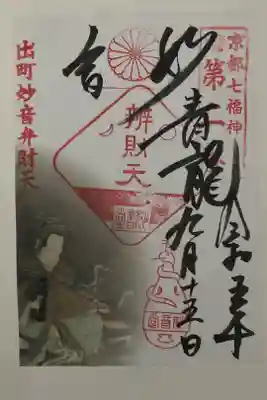 京都七福神
第一
令和五年
九月十五日
妙音
青龍
辨財天
出町妙音弁財天